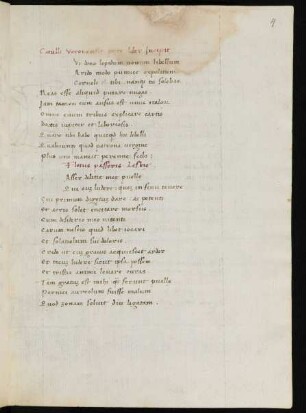 Catulli Veronensis liber incipit
Cui dono lepidum novum libellum
Arido modo pumice expolitum
Corneli tibi namque tu solebas
Meas esse aliquid putare nugas
Iam tum cum ausus es unus
Omne evum tribus explicare cartis
Doctis iupiter et laboriosis
Quare tibi habe quicquid hoc libelli
Qualecunque quod patrona virgo
Plus uno maneat perenne seclo
Fletus passeris Lesbie
Passer delitie mee puelle
Qui cum ludere quem in sinu tenere
Cui primum digitum dare
Et acris solet incitare morsus
Cum desiderio meo nitenti
Carum nescio quid libet iocari
Et solatiolum sui doloris
Credo ut cum gravis acquiescet ardor
Tecum ludere sicut ipsa possem
Et tristis animi levare curas
Tam gratum est mihi ferunt puelle
Pernici aureolum fuisse malum
Quod zonam soluit diu ligatam